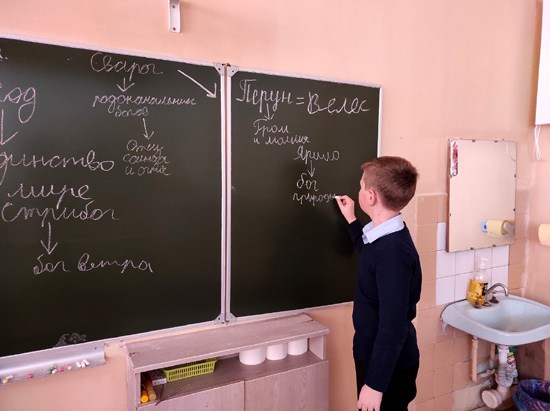 од
динство
мире
Стрибог
бог ветра
Сварог
родоначальник
богов
Отец
солнца
и огня
Перун = Велес
Гром
и молния
Ярило
бог
природы